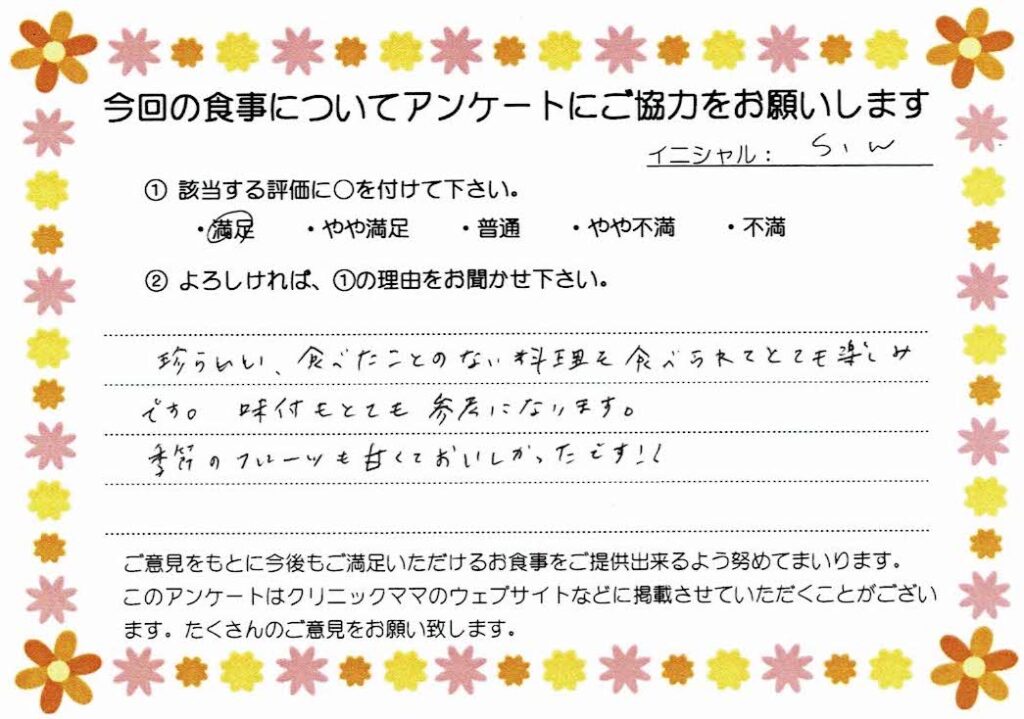 今回の食事についてアンケートにご協力をお願いします
イニシャル： S.W
① 該当する評価に○を付けて下さい。
・満足 ・やや満足 ・普通 ・やや不満 ・不満
② よろしければ、①の理由をお聞かせ下さい。
珍らしい、食べたことのない料理を食べられてとても楽しみ
です。 味付もとても参考になります。
季節のフルーツも甘くておいしかったです!!
ご意見をもとに今後もご満足いただけるお食事をご提供出来るよう努めてまいります。
このアンケートはクリニックママのウェブサイトなどに掲載させていただくことがござい
ます。たくさんのご意見をお願い致します。